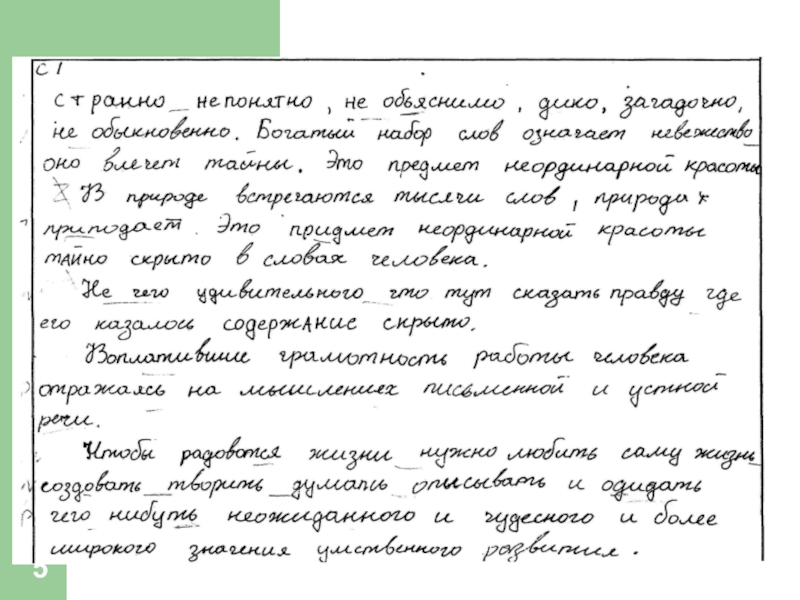 С 1
странно непонятно, не обьяснимо, дико, загадочно,
не обыкновенно. Богатый набор слов означает невежество
оно влечет тайны. Это предмет неординарной красоты
В природе встречаются тысячи слов, природа
приподает. Это придмет неординарной красоты
тайно скрыто в словах человека.
Не чего удивительного что тут сказать правду где
его казалось содержАние скрыто.
Воплатившие грамотность работы человека
отражаясь на мышлениех письменной и устной
речи.
Чтобы радоватся жизни нужно любить саму жизнь
создовать творить думать описывать и одидать
чего нибуть неожиданного и чудесного и более
широкого значения умственного развития.
5